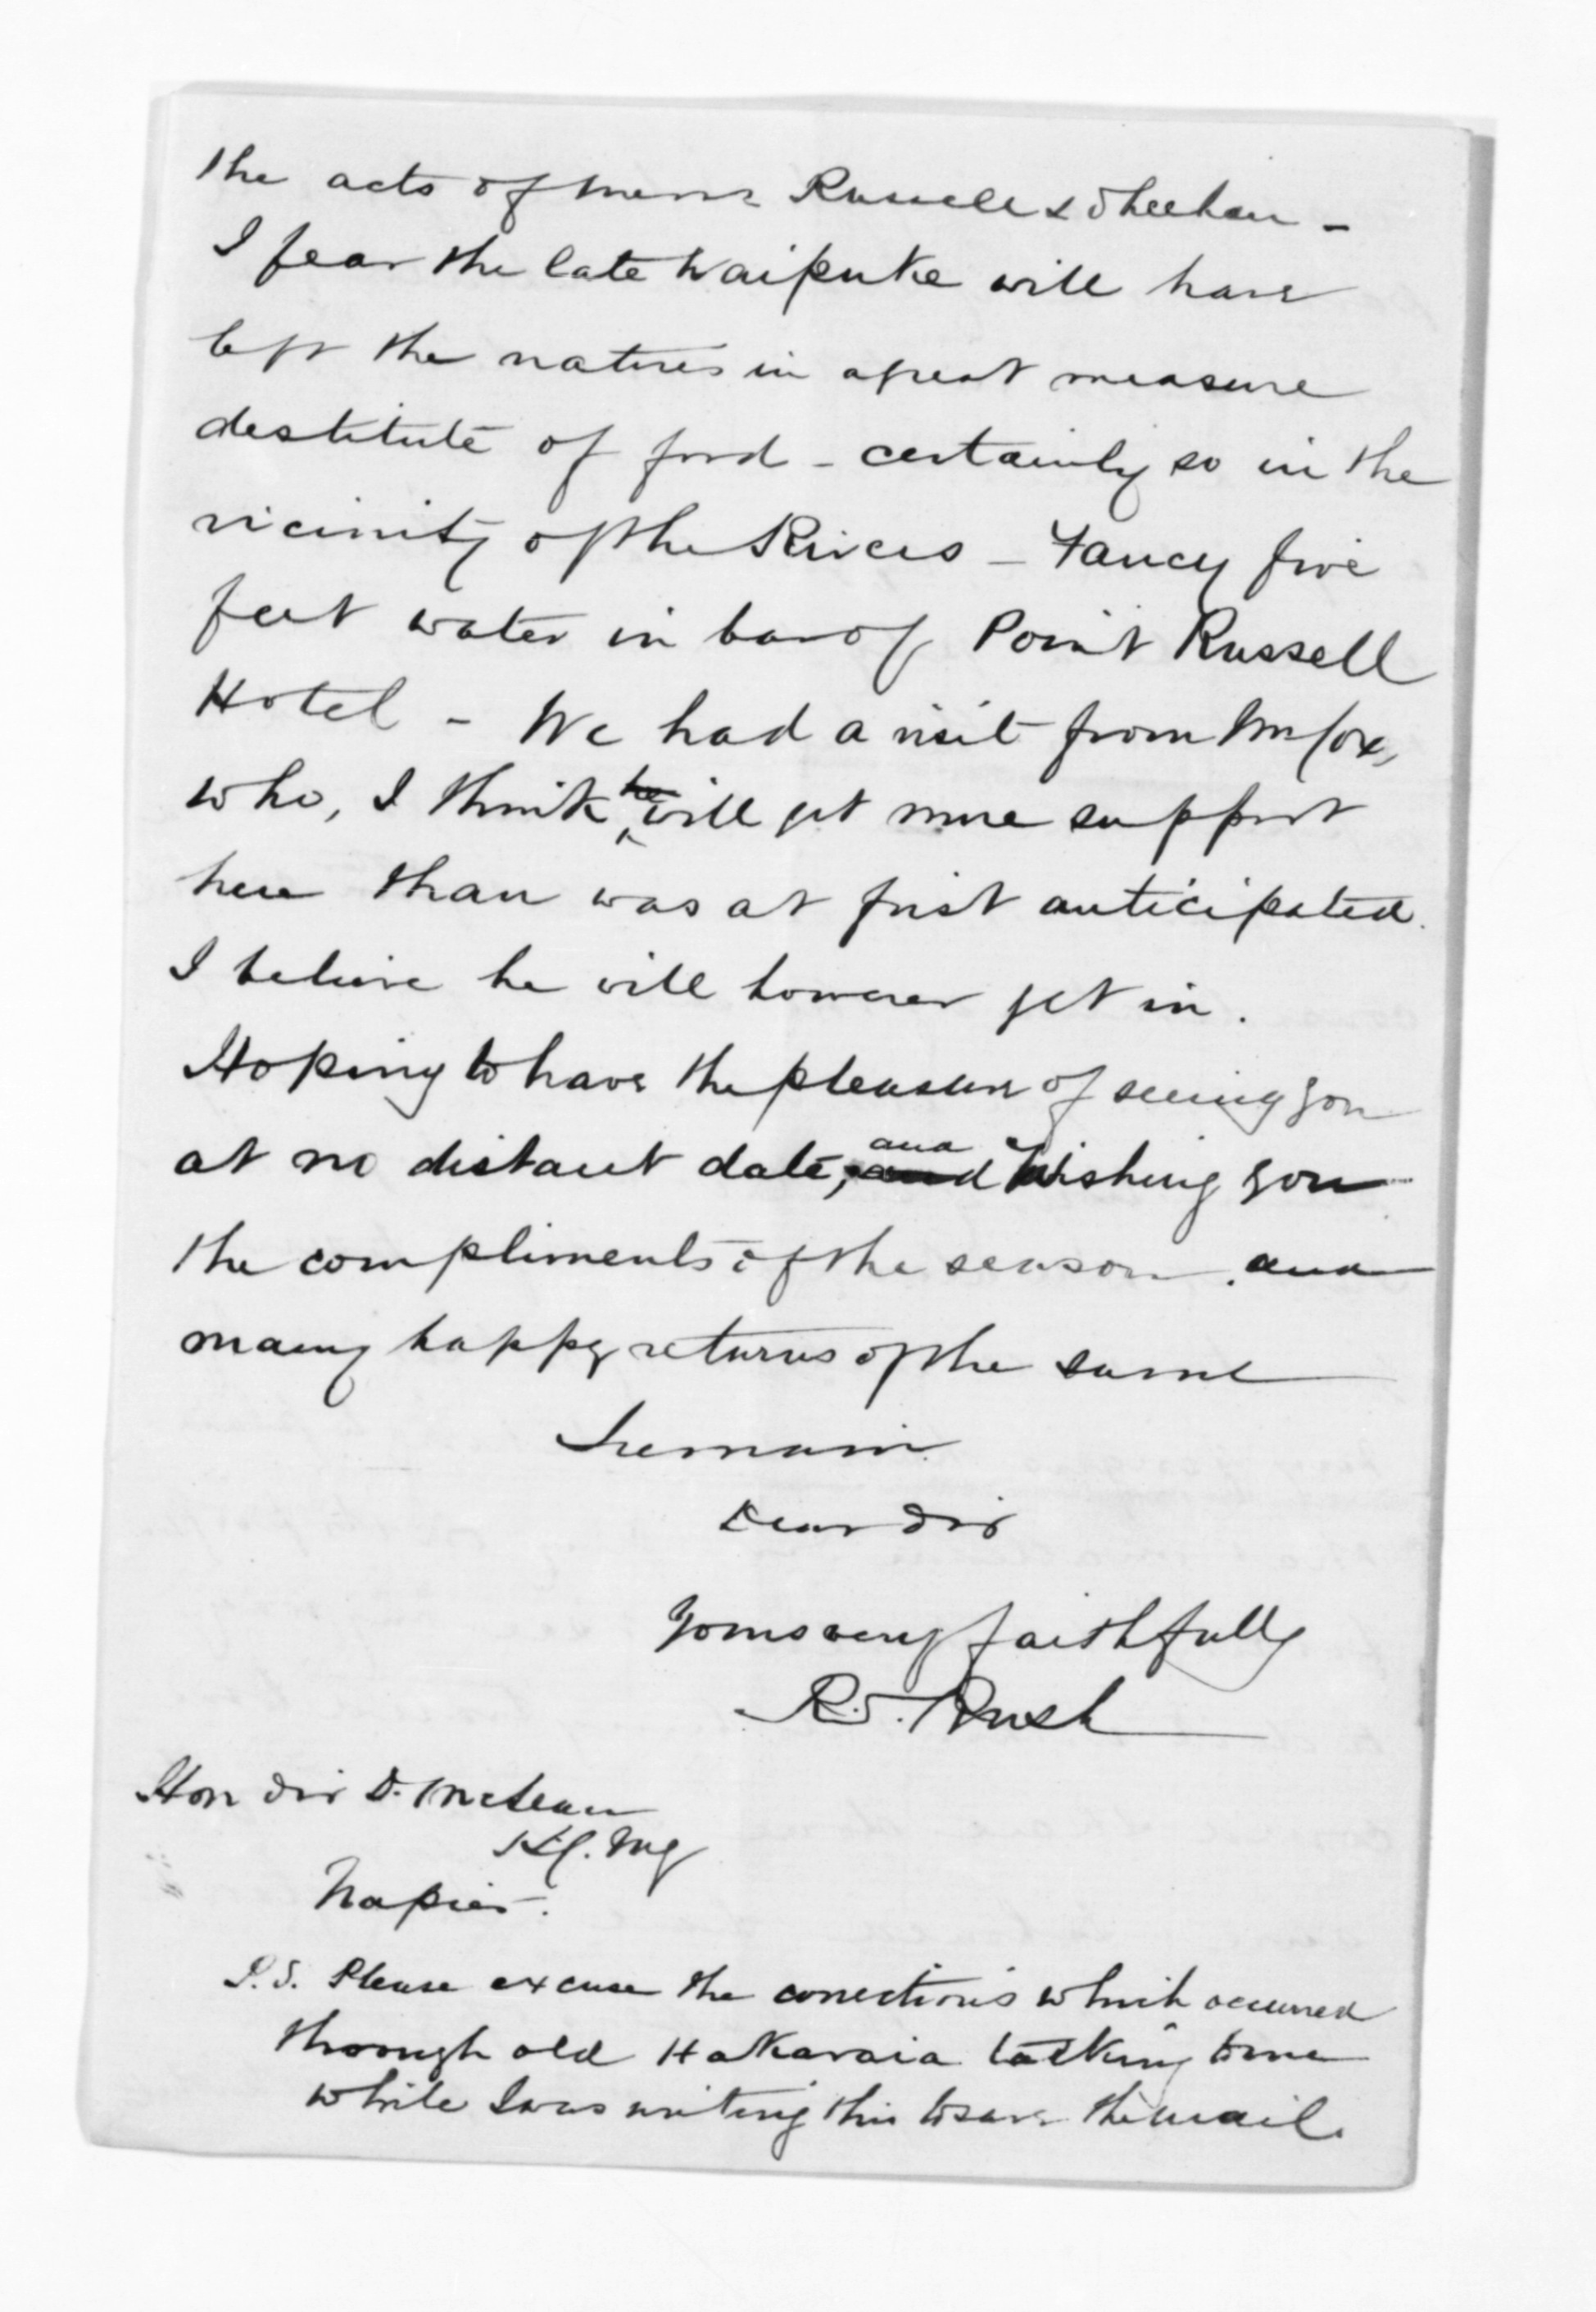 the acts of Messrs Russell & Sheehan -
I fear the late Waipuke will have
left the natives in a great measure
destitute of food - certainly so in the
vicinity of the Rivers - Fancy five
feet water in bar of Point Russell
Hotel - We had a visit from Mr Cox,
who, I think he will get more support
here than was at first anticipated.
I believe he will however get in.
Hoping to have the pleasure of seeing you
at no distant date, and and Wishing you
the compliments of the season, and
many happy returns of the same
I remain
Dear Sir
Yours very faithfully
R.S. Bush
Hon Sir D. McLean
K.C.M.G
Napier.
P.S. Please excuse the corrections which occurred
through old Hakaraia talking to me
while I was writing this to save the mail.